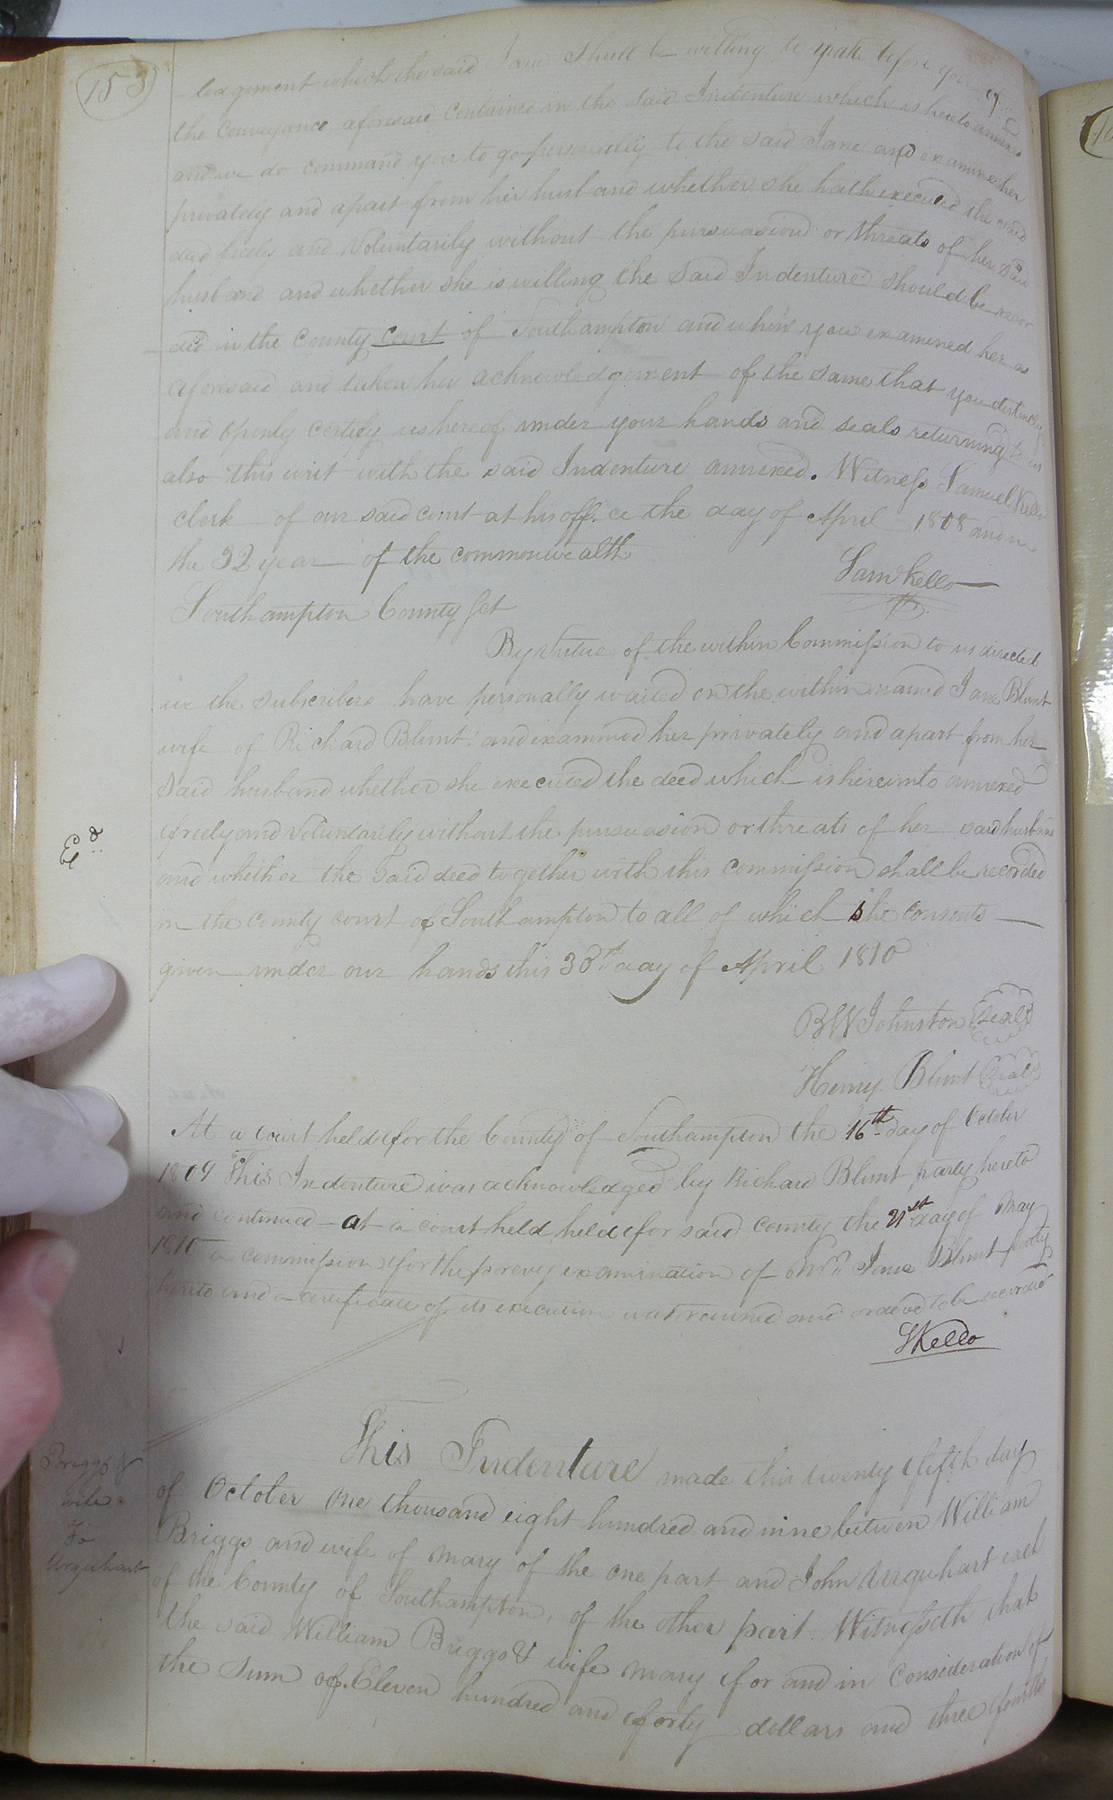 153
ledgment which the said Jane shall be willing to make before you of
the Conveyance aforesaid contained in the said Indenture which is hereto annexed
and we do command you to go personally to the said Jane and examine her
privately and apart from her husband whether she hath executed the said
deed freely and Voluntarily without the pursuasion or threats of her said
husband and whether she is willing the said Indenture should be recor
ded in the County court of Southampton and when you examined her as
aforesaid and taken her acknowledgement of the same that you distinctly
and openly certify us hereof under your hands and seals returning to us
also this writ with the said Indenture annexed. Witness Samuel Kello
clerk of our said court at his office the day of April 1808 and in
the 32 year of the commonwealth
Sam Kello
Southampton County Sct
By virtue of the within Commission to us directed
we the subscribers have personally waited on the within named Jane Blunt
wife of Richard Blunt and examined her privately and apart from her
said husband whether she executed the deed which is hereunto annexed
freely and Voluntarily without the pursuasion or threats of her said husband
and whether the said deed together with this commission shall be recorded
in the county court of Southampton to all of which she consents
given under our hands this 30th day of April 1810
Ed
BW Johnston Seal
Henry Blunt Seal
At a court held for the County of Southampton the 16th day of October
1809 This Indenture was acknowledged by Richard Blunt party hereto
and continued at a court held held for said county the 21st day of May
1810 a commission for the privy examination of Mrs Jane Blunt party
hereto and a certificate of its execution was returned and ordered to be recorded
SKello
Briggs &
wife
To
Urquhart
This Indenture made this twenty fifth day
of October one thousand eight hundred and nine between William
Briggs and wife of Mary of the one part and John Urquhart
of the County of Southampton, of the other part Witnesseth that
the said William Briggs & wife Mary for and in Consideration of
the sum of Eleven hundred and forty dollars and three fourths